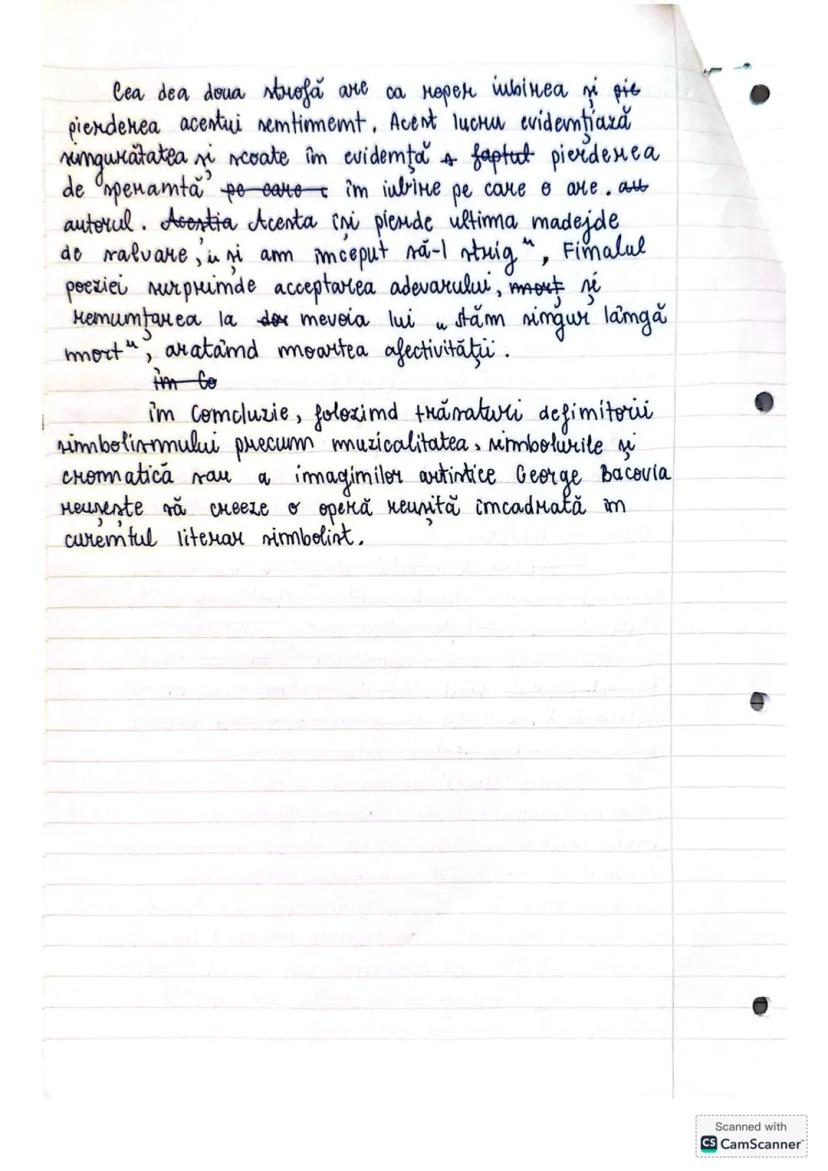 Cea dea doua strofă are ca reper iubirea și pie
pierderea acestui sentiment. Acest lucru evidențiază
singurătatea și scoate în evidență a faptul pierderea
de speranță pe care i în iubire pe care o are. au
autorul. Acestia Acesta își pierde ultima nadejde
de salvare, „și am început să-l strig", Finalul
poeziei surprinde acceptarea adevarului, morț și
renunțarea la dor nevoia lui „stăm singur lângă
mort", aratând moartea afectivității.
în Co
în concluzie, folosind trăsaturi definitorii
simbolismului precum muzicalitatea, simbolurile și
cromatică sau a imaginilor artistice George Bacovia
reușește să creeze o operă reușită încadrată în
curentul literar simbolist.
Scanned with
CS CamScanner